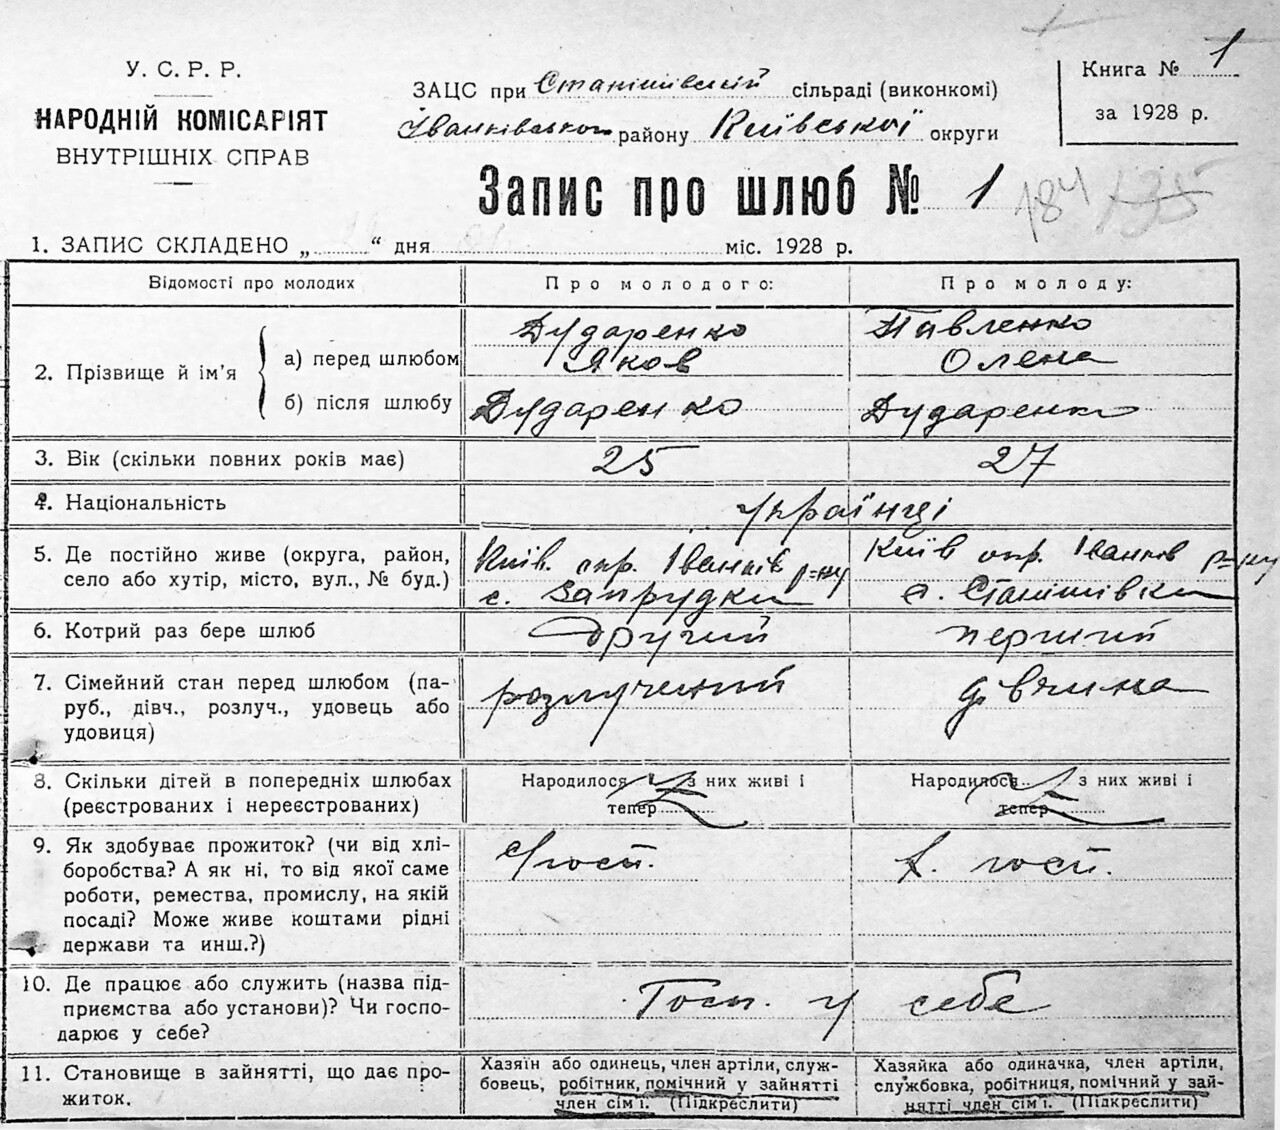 У. С. Р. Р.
НАРОДНІЙ КОМІСАРІЯТ
ВНУТРІШНІХ СПРАВ
ЗАЦС при Станішівській сільраді (виконкомі)
Іванківського району Київської округи
Книга № 1
за 1928 р.
Запис про шлюб № 1
184 135
1. ЗАПИС СКЛАДЕНО „ “ дня міс. 1928 р.
Відомості про молодих
Про молодого:
Про молоду:
2. Прізвище й ім'я
а) перед шлюбом
Дударенко
Яков
Павленко
Олена
б) після шлюбу
Дударенко
Дударенко
3. Вік (скільки повних років має)
25
27
4. Національність
українці
5. Де постійно живе (округа, район,
село або хутір, місто, вул., № буд.)
Київ. окр. Іванків р-ну
с. Запрудка
Київ окр. Іванків р-ну
с. Станішівка
6. Котрий раз бере шлюб
другий
перший
7. Сімейний стан перед шлюбом (па-
руб., дівч., розлуч., удовець або
удовиця)
розлучений
дівчина
8. Скільки дітей в попередніх шлюбах
(реєстрованих і нереєстрованих)
Народилося з них живі і
тепер
Народилося з них живі і
тепер
9. Як здобуває прожиток? (чи від хлі-
боробства? А як ні, то від якої саме
роботи, ремества, промислу, на якій
посаді? Може живе коштами рідні
держави та инш.?)
госп.
госп.
10. Де працює або служить (назва під-
приємства або установи)? Чи госпо-
дарює у себе?
Госп. у себе
11. Становище в зайнятті, що дає про-
житок.
Хазяїн або одинець, член артіли, служ-
бовець, робітник, помічний у зайнятті
член сім'ї. (Підкреслити)
Хазяйка або одиначка, член артіли,
службовка, робітниця, помічний у зай-
нятті член сім'ї. (Підкреслити)